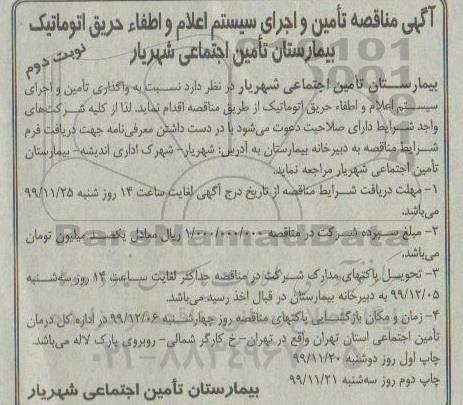 آگهی مناقصه تأمین و اجرای سیستم اعلام و اطفاء حریق اتوماتیک
بیمارستان تأمین اجتماعی شهریار
نوبت دوم
بیمارستان تأمین اجتماعی شهریار در نظر دارد نسبت به واگذاری تأمین و اجرای
سیستم اعلام و اطفاء حریق اتوماتیک از طریق مناقصه اقدام نماید. لذا از کلیه شرکت‌های
واجد شرایط دارای صلاحیت دعوت می‌شود با در دست داشتن معرفی‌نامه جهت دریافت فرم
شرایط مناقصه به دبیرخانه بیمارستان به آدرس: شهریار- شهرک اداری اندیشه- بیمارستان
تأمین اجتماعی شهریار مراجعه نماید.
۱- مهلت دریافت شرایط مناقصه از تاریخ درج آگهی لغایت ساعت ۱۴ روز شنبه ۹۹/۱۱/۲۵
می‌باشد.
۲- مبلغ سپرده شرکت در مناقصه ۱/۰۰۰/۰۰۰/۰۰۰ ریال معادل یکصد میلیون تومان
می‌باشد.
۳- تحویل پاکتهای مدارک شرکت در مناقصه حداکثر لغایت ساعت ۱۴ روز سه‌شنبه
۹۹/۱۲/۰۵ به دبیرخانه بیمارستان در قبال اخذ رسید می‌باشد.
۴- زمان و مکان بازگشایی پاکتهای مناقصه روز چهارشنبه ۹۹/۱۲/۰۶ در اداره کل درمان
تأمین اجتماعی استان تهران واقع در تهران- خ کارگر شمالی- روبروی پارک لاله می‌باشد.
چاپ اول روز دوشنبه ۹۹/۱۱/۲۰
چاپ دوم روز سه‌شنبه ۹۹/۱۱/۲۱
بیمارستان تأمین اجتماعی شهریار
ParsNamadData
۰۲۱-۸۸۳۴۹۶۷۰